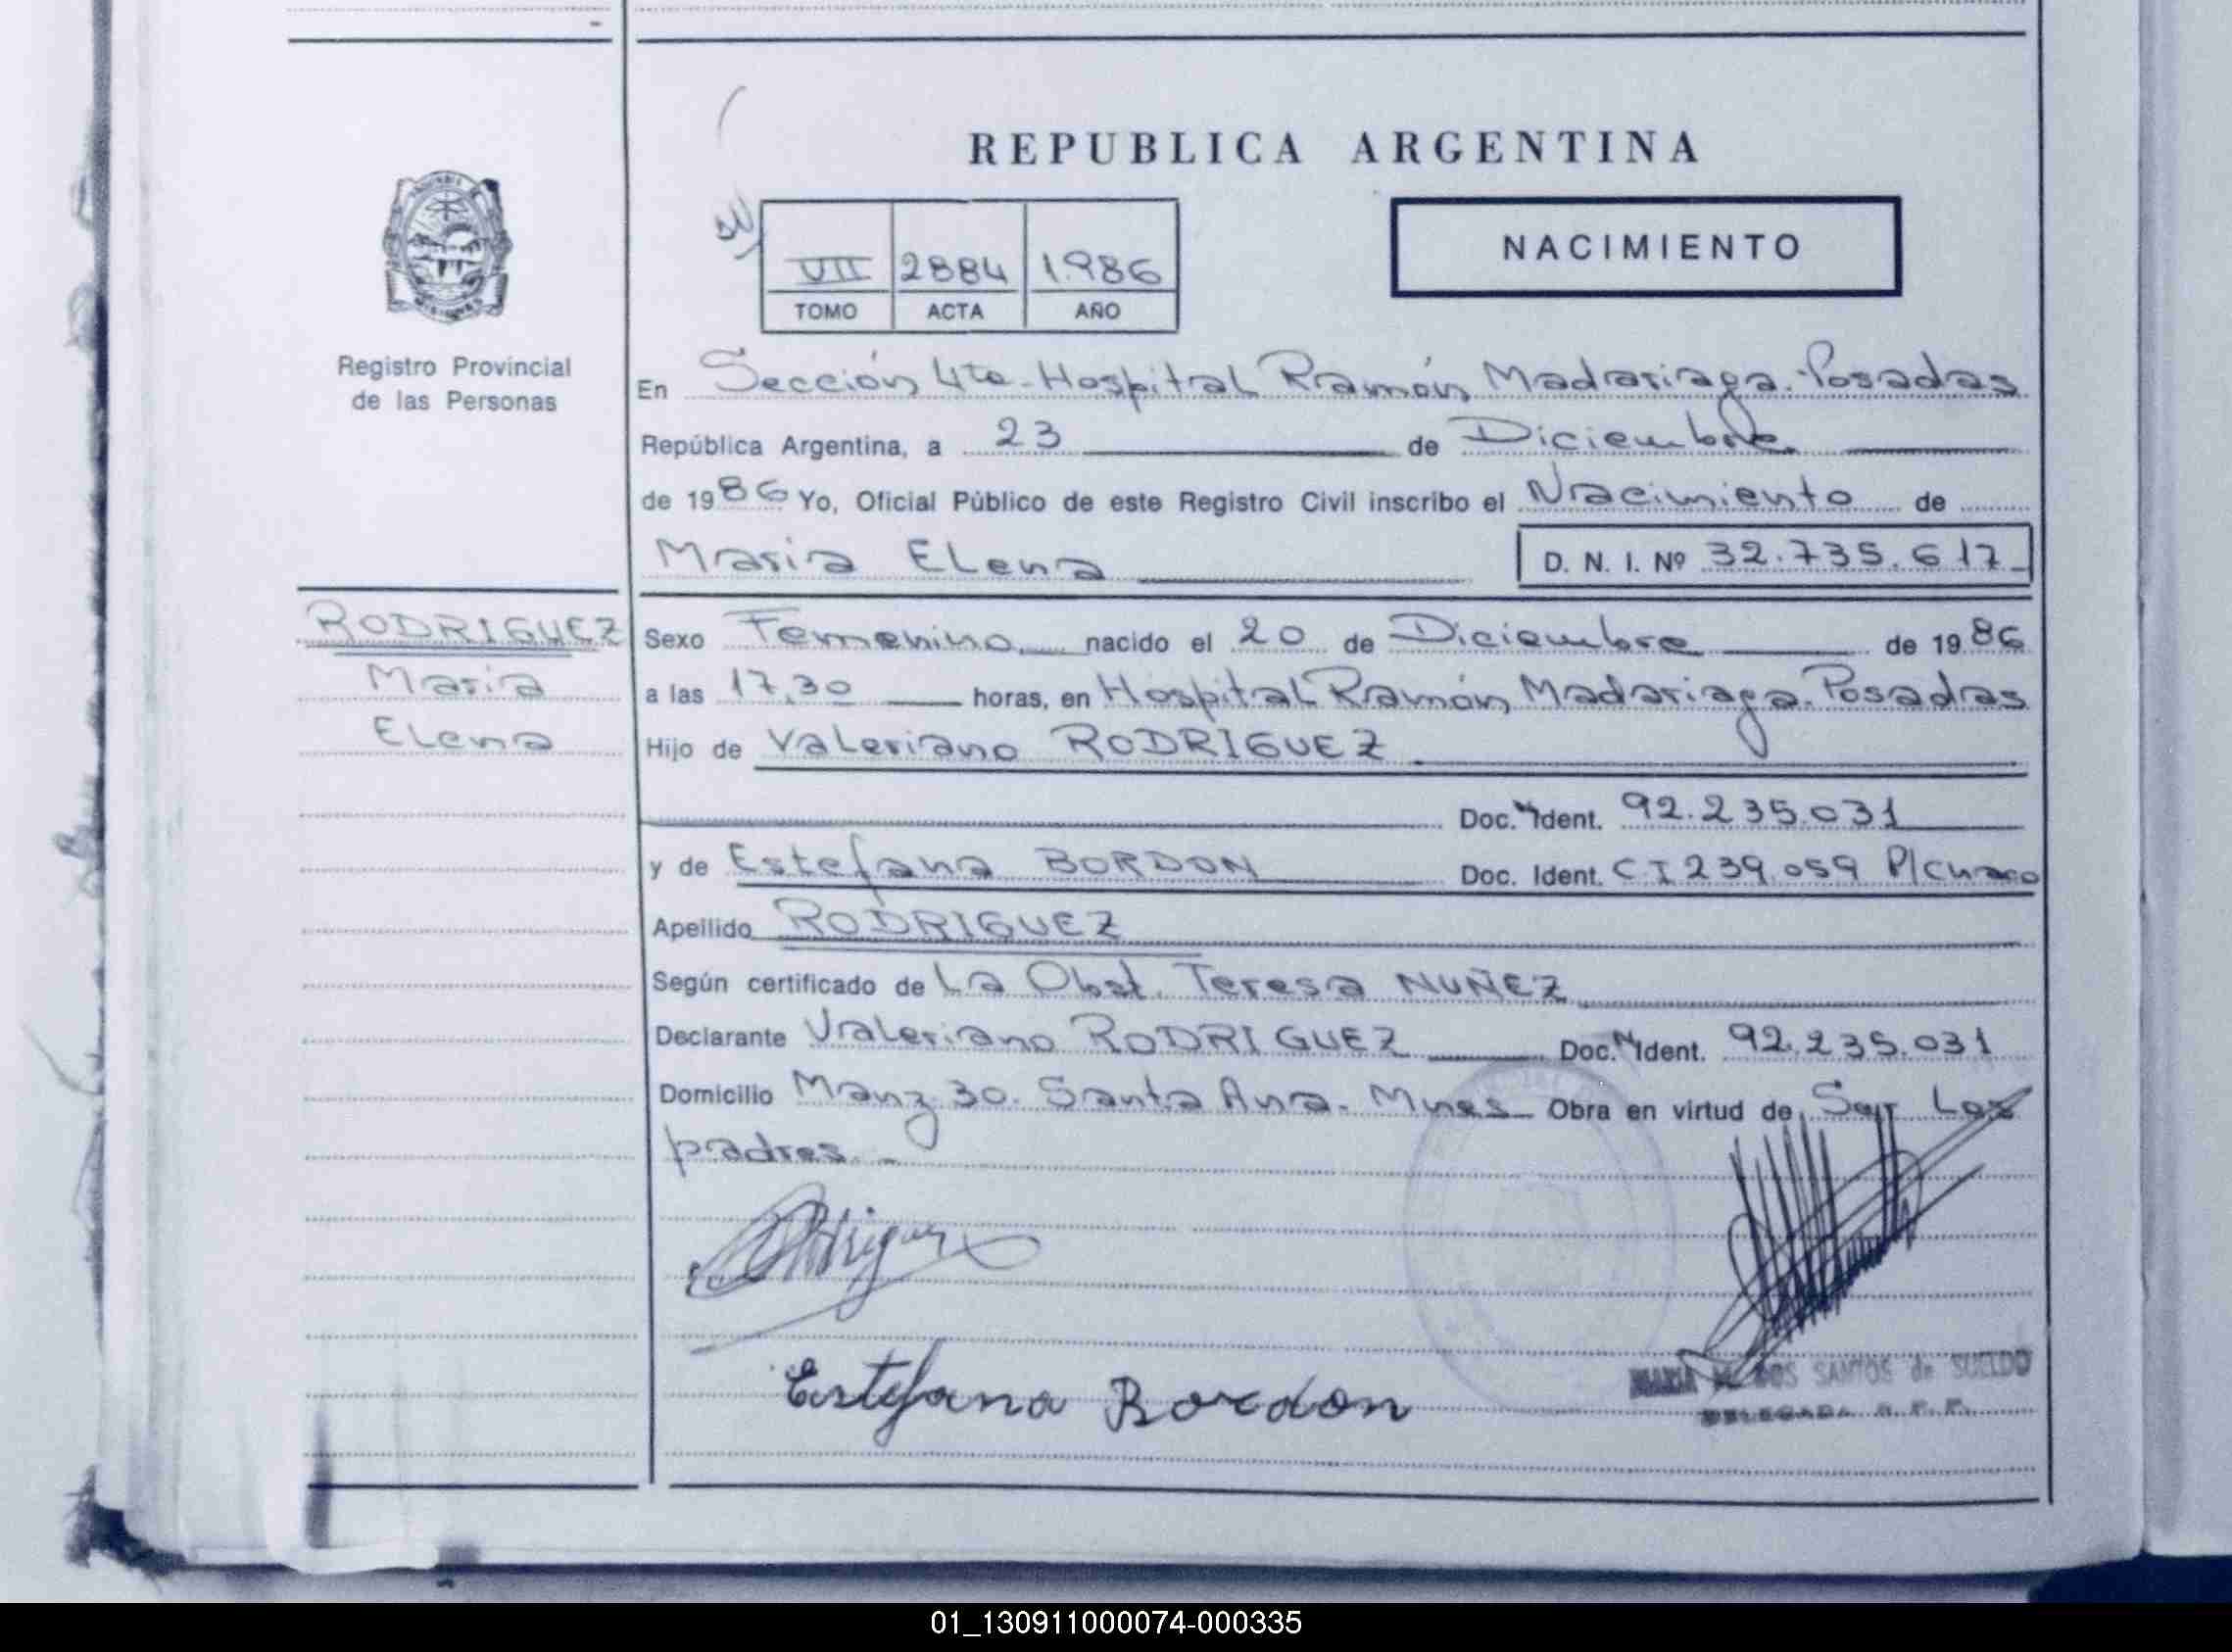 REPUBLICA ARGENTINA
NACIMIENTO
VII 2884 1.986
TOMO ACTA AÑO
Registro Provincial
de las Personas
En Sección 4ta - Hospital Ramón Madariaga - Posadas
República Argentina, a 23 de Diciembre
de 1986 Yo, Oficial Público de este Registro Civil inscribo el Nacimiento de
Maria Elena
D. N. I. Nº 32.735.617
RODRIGUEZ
Maria
Elena
Sexo Femenino nacido el 20 de Diciembre de 1986
a las 17,30 horas, en Hospital Ramón Madariaga. Posadas
Hijo de Valeriano RODRIGUEZ
Doc. Ident. 92.235.031
y de Estefana BORDON Doc. Ident. CI 239.059 P/Chaco
Apellido RODRIGUEZ
Según certificado de La Obst. Teresa NUÑEZ
Declarante Valeriano RODRIGUEZ Doc. Ident. 92.235.031
Domicilio Manz 30. Santa Ana. Mnes Obra en virtud de Ser Los
padres.-
Estefana Bordon
MARIA DOS SANTOS de SUELDO
DELEGADA
01_130911000074-000335